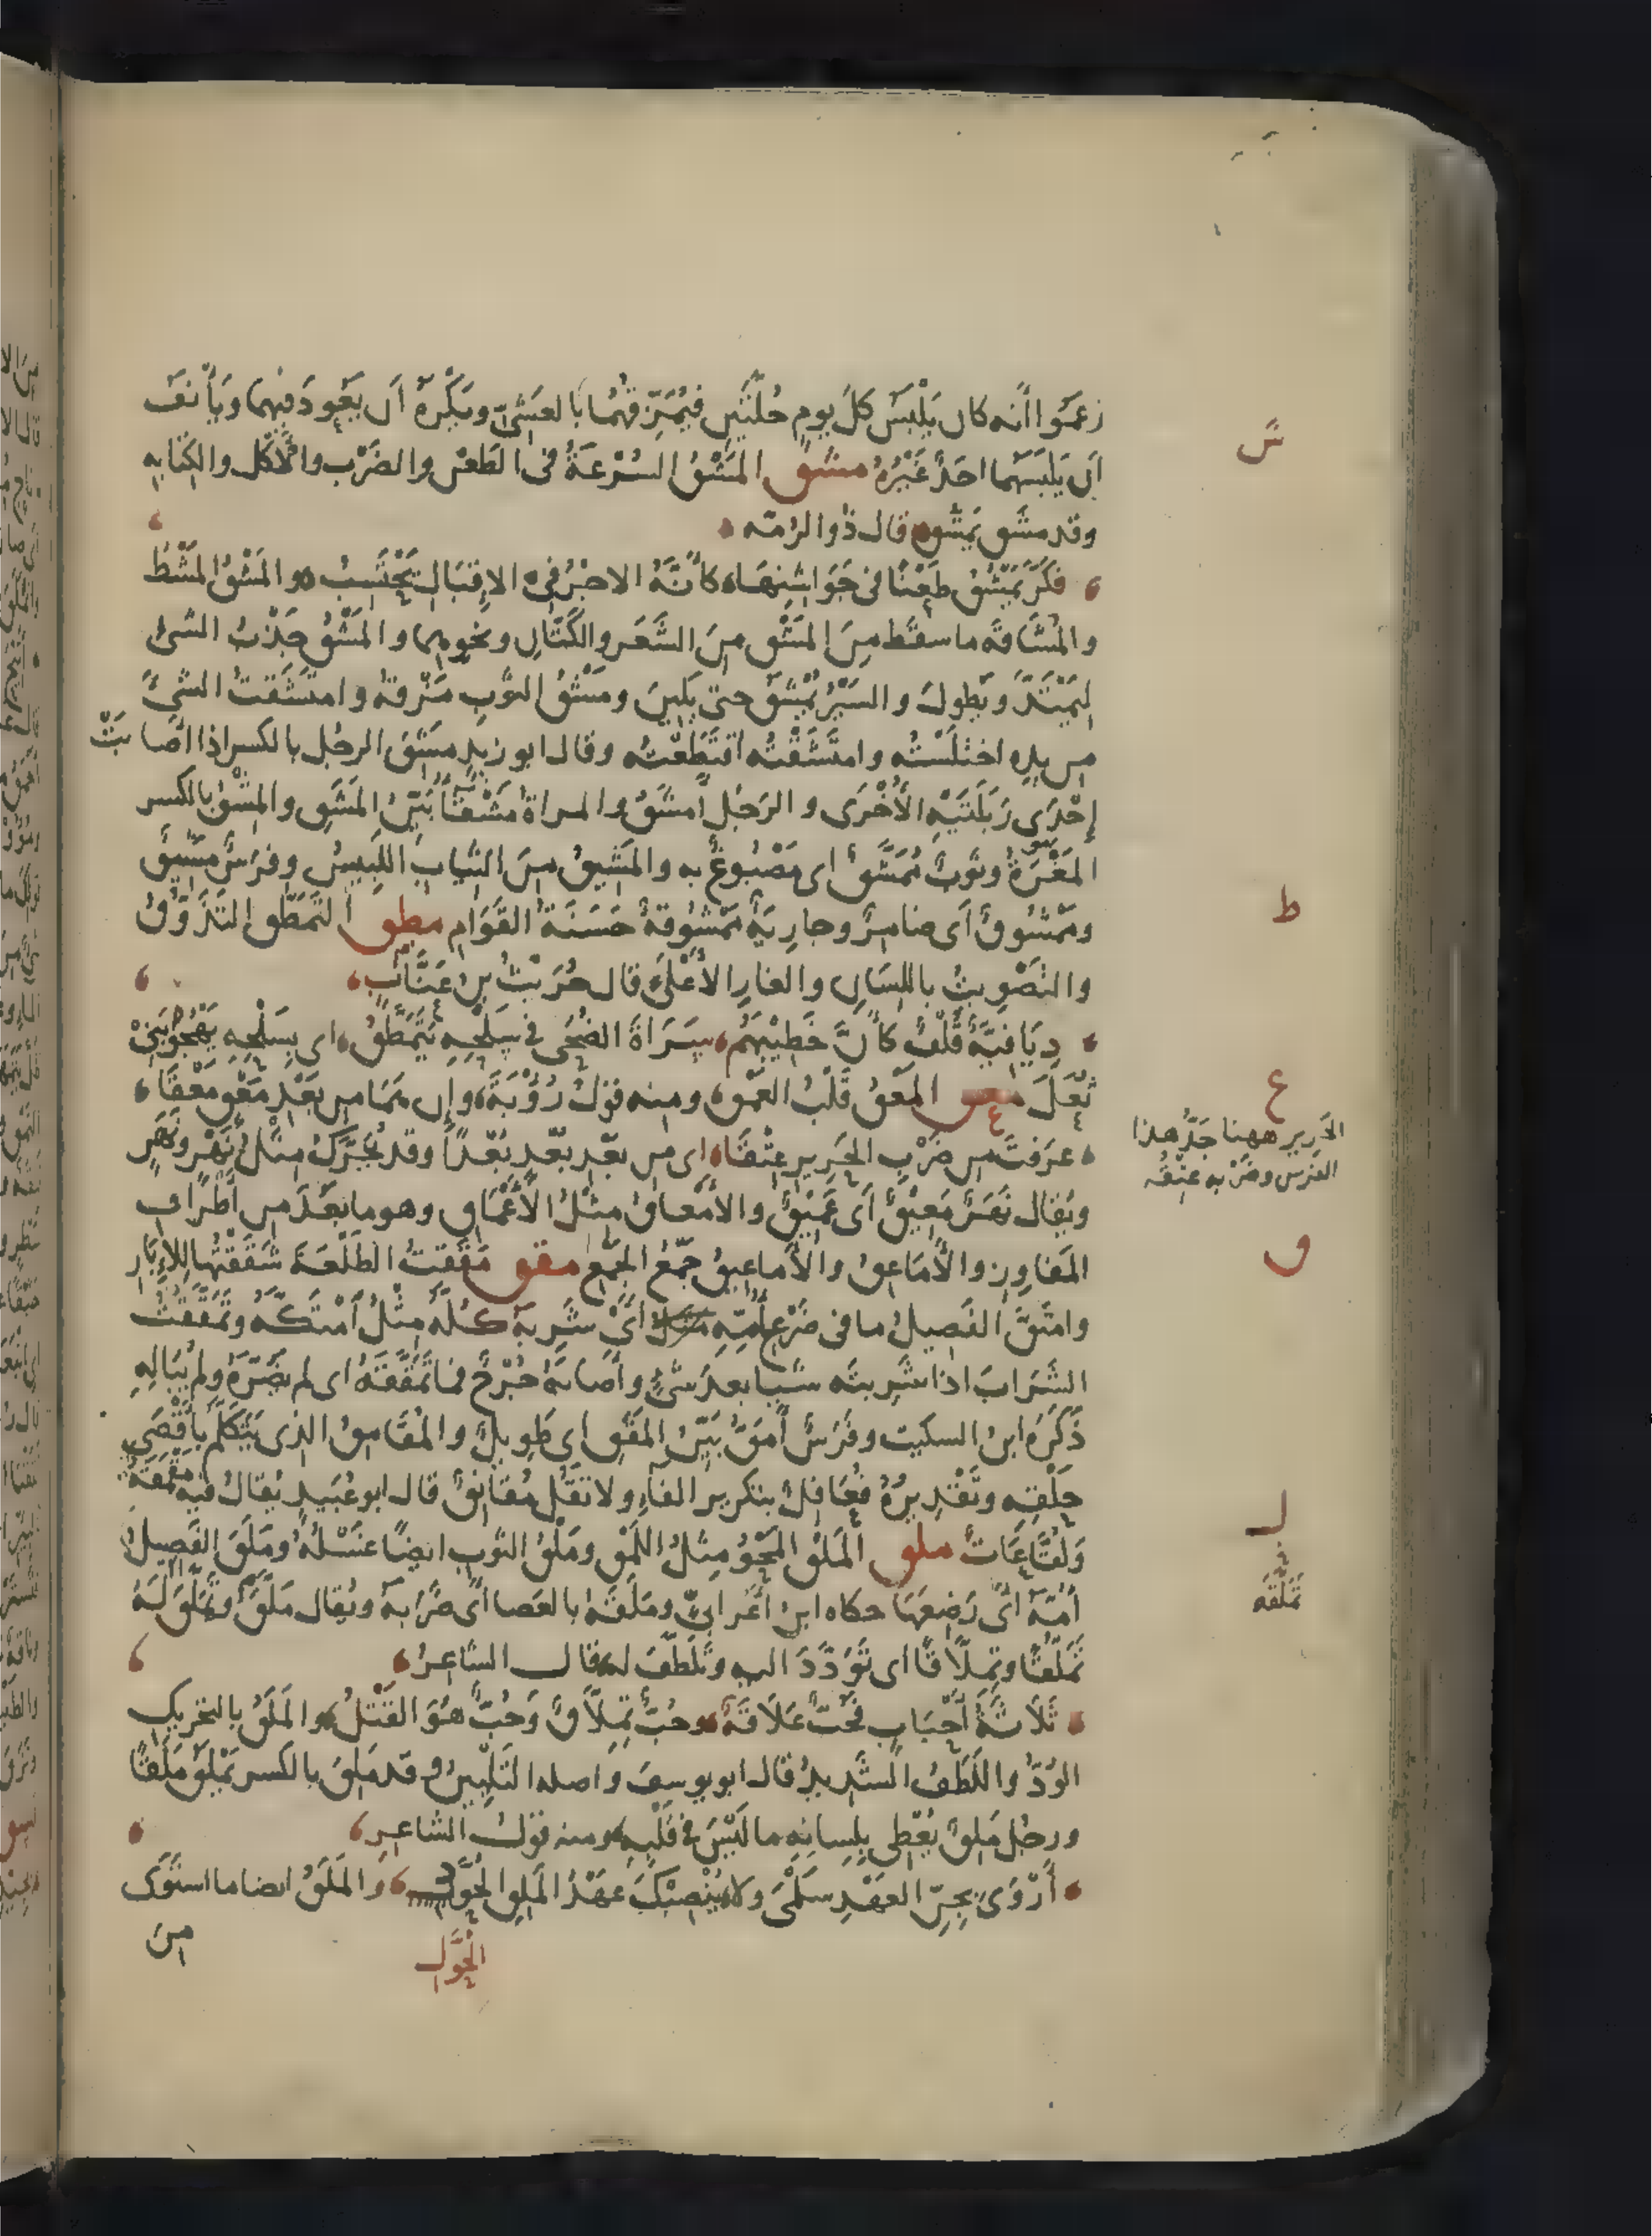 زعموا أنه كان يَلْبَسُ كلَّ يومٍ حُلّتَينِ فيُمَزِّقُهُما بالعَشِىّ ويَكْرَهُ أن يَعُودَ فيهما ويَأْنَفُ
س
أن يَلبَسَهما احَدٌ غَيْرُهُ مشق المَشْقُ السُرْعَةُ فى الطَعْنِ والضَرْبِ والأكل والكِتابه
وقد مشَق يَمشُق قال ذُوالرُمّه
فكَرَّ يَمْشُقُ طَعْنًا فى جَوَاشِنِهَا كَأنَّهُ الاجْرَ فى الاِقبَالِ يَحْتَسِبُ والمَشْقُ المَشْطُ
والمُشَاقَة ما سقَط مِنَ المَشْقِ مِنَ الشَعَر والكَتّانِ ونحوهما والمَشْقُ جَذْبُ الشىْ
لِيَمْتَدَّ ويَطُولَ والسَيْرُ يُمْشَقُ حتى يَلِينَ ومَشْقُ الثوبِ مَزْقهُ وامتَشَقتُ الشىْءَ
من يدِهِ اختَلَسْتُه وامتَشَقْتُه اقتَطَعْتُه وقال ابو زيدٍ مشِقَ الرجُل بالكسر اذا اصَابَتْ
إحْدَى رَبَلَتَيْهِ الأُخْرَى والرَجُلُ أمشَقُ والمراةُ مَشْقَآءُ بَيّنُ المَشَقِ والمِشْقُ بالكسر
المَغْرَةُ وثوبٌ مُمَشَّقٌ اى مَصْبُوغٌ به والمَشِيقُ مِنَ الثِيابِ اللَبِيسُ وفرسٌ مَشِيقٌ
ط
ومَمْشُوقٌ أى ضامِرٌ وجارِيَةٌ مَمْشُوقَةٌ حَسَنَةُ القَوَامِ مطق التَمَطُّق التَذَوُّقُ
والتَصْوِيتُ باللِسَانِ والغارِ الأَعْلَى قال حُرَيْثُ بن عَنَّابٍ
دِيَافيَّةٌ قُلْفٌ كَأنَّ خَطِيْبَهُم سَرَاةَ الضُحَى فى سَلْحِهِ يَتَمَطَّقُ اى بِسَلْحِهِ يَهْجُو بَنِى
ع
ثُعَلَ معق المَعْقُ قَلْبُ العَمْقِ ومنه قولُ رُؤْبَةَ وإن هَمَا من بَعْدِ مَعْقٍ مَعْقَا
الحَرير ههنا جَدُّ هذا
عَرَفتَ من ضَرْبِ الحَرِيرِ عِتْقَا اى من بَعْدِ بُعْدٍ بُعْدًا وقد يُحَرَّكُ مِثْلُ نَهْرٍ ونَهَرٍ
الفرس وضَرْبه عِتْقُه
ويُقال نَهَرٌ مَعِيْقٌ أى عَمِيْقٌ والأَمْعَاقُ مِثْلُ الأَعْمَاقِ وهو ما بَعُدَ من أَطْرَافِ
ق
المَفاوِزِ والأَمَاعِقُ والأَماعِيقُ جَمْعُ الجَمْع مقق مَقَقتُ الطَلْعَةَ شَقَقْتُها لِلإِبَارِ
وامتَقَّ الفَصِيلُ ما فى ضَرْعِ أُمِّهِ أىْ شَرِبَهُ كُلَّهُ مِثْلُ امْتَكَّهُ وتَمَقَّقْتُ
الشَرَابَ اذا شَرِبتَه شيًا بعد شىْءٍ واصَابَهُ جُرْحٌ فما تَمَقَّقَهُ اى لم يَضُرَّهُ ولم يُبَالِهِ
ذَكَرَهُ ابنُ السكيت وفَرَسٌ أَمَقُّ بَيّنُ المَقَقِ اى طَوِيلٌ والمُقَامِقُ الذى يَتَكَلَّمُ بأَقْصَى
حَلْقِهِ وتَقْدِيرُهُ فُعَافِلٌ بتكرير الفآءِ ولا تَقُل مُقَانِقٌ قال ابو عُبَيدٍ يُقالُ فيه مَقْمَقَةٌ
ل
ولَقَّاعَاتٌ ملق المَلْقُ المَحْوُ مِثْلُ اللَمْقِ ومَلْقُ الثوب ايضًا غَسْلُهُ ومَلَقَ الفَصِيلُ
تَمَلَّقَهُ
أُمَّهُ أىْ رَضِعَهَا حكاه ابن اعْرابىّ ومَلَقَهُ بالعَصا اى ضَرَبَهُ ويُقال مَلَقَ وتَمَلَّقَ لَهُ
تَمَلُّقًا وتِمِلّاقًا اى تَوَدَّدَ اليه وتَلَطَّفَ له قال الشاعِرُ
ثَلاثَةُ أَحْبَابٍ فحُبٌّ عَلَاقَةٌ وحُبٌّ تِمِلّاقٌ وَحُبٌّ هُوَ القَتْلُ والمَلَقُ بالتحريك
الوُدّ واللُطْفُ الشَدِيدُ قال ابو يوسف واصله التَلْيِينُ وقد مَلِقَ بالكسر يَمْلَقُ مَلَقًا
ورجُل مَلِقٌ يُعْطِى بلِسانِهِ ما لَيْسَ فى قَلْبِهِ ومنه قولُ الشاعِرِ
أَرْوَى بِجِنّ العَهْدِ سَلْمَى ولا يُنْصِبْكَ عَهْدُ المَلِقِ الحُوَّلِ والمَلَقُ ايضا ما استَوَى
الحُوَّلِ
مِنَ